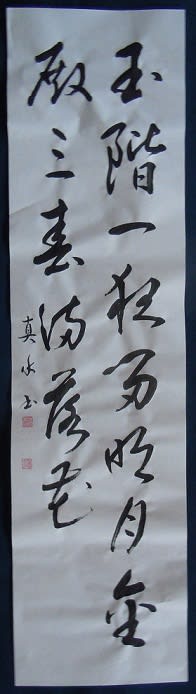 玉階一夜留明月金
殿三春満落花
真水書